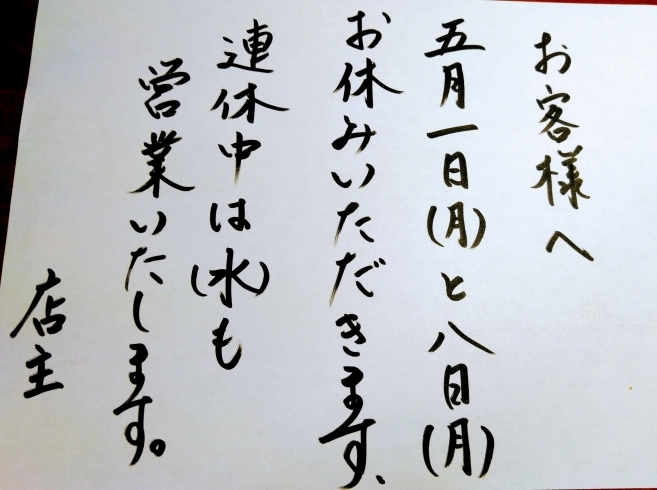 お客様へ
五月一日(月)と八日(月)
お休みいただきます、
連休中は(水)も
営業いたします。
店主